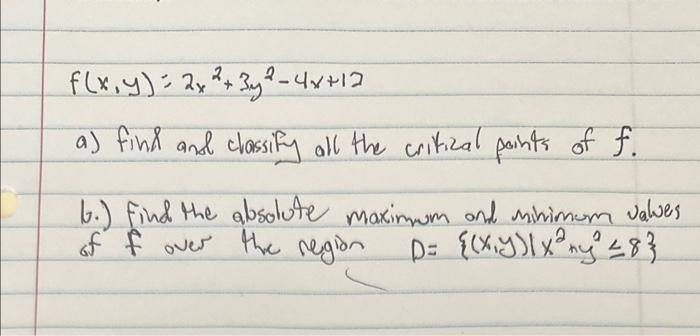 f(x,y) = 2x² + 3y² - 4x + 12
a) find and classify all the critical points of f.
b.) Find the absolute maximum and minimum values
of f over the region D = {(x,y) | x² + y² ≤ 8}